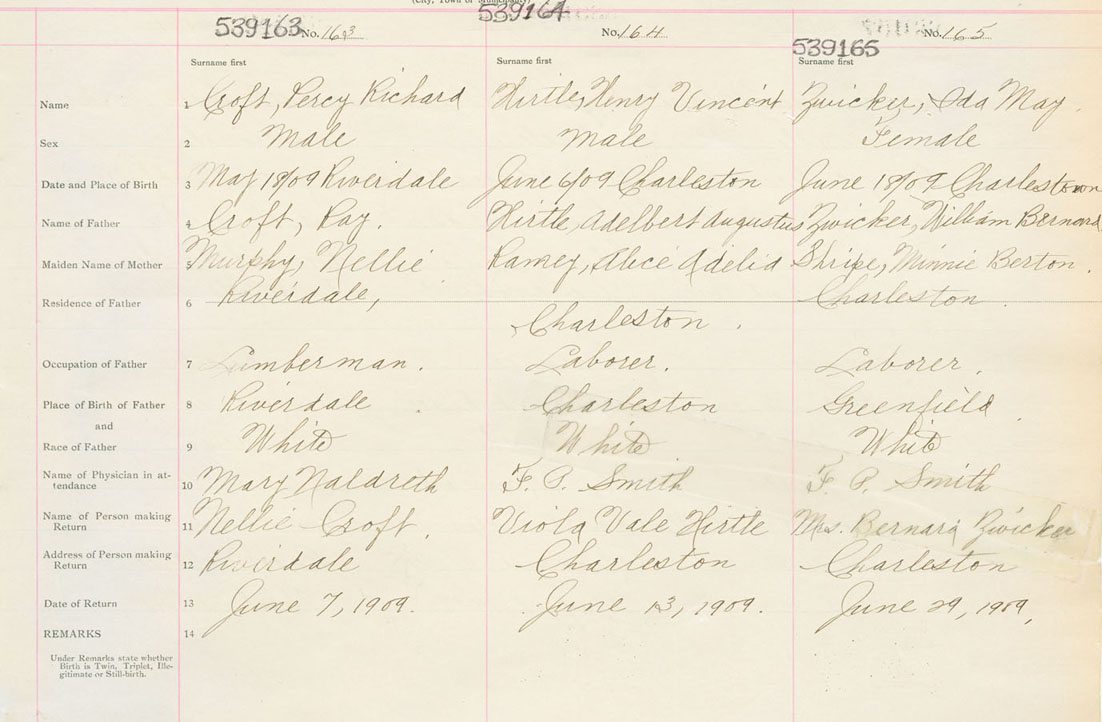 (City, Town or Municipality)
539163 No. 163
539164
No. 164
539165
No. 165
Surname first
Surname first
Surname first
Name 1 Croft, Percy Richard Hirtle, Henry Vincent Zwicker, Ida May.
Sex 2 Male Male Female
Date and Place of Birth 3 May 18/09 Riverdale June 6/09 Charleston June 18/09 Charlestown
Name of Father 4 Croft, Ray. Hirtle, Adelbert Augustus Zwicker, William Bernard
Maiden Name of Mother 5 Murphy, Nellie Ramey, Alice Adelia Minnie Berton.
Residence of Father 6 Riverdale, Charleston. Charleston
Occupation of Father 7 Lumberman. Laborer. Laborer.
Place of Birth of Father 8 Riverdale. Charleston Greenfield.
and
Race of Father 9 White White White
Name of Physician in at-
tendance 10 Mary F. P. Smith F. P. Smith
Name of Person making
Return 11 Nellie Croft. Viola Vale Hirtle Mrs. Bernard Zwicker
Address of Person making
Return 12 Riverdale Charleston Charleston
Date of Return 13 June 7, 1909. June 13, 1909. June 29, 1909,
REMARKS 14
Under Remarks state whether
Birth is Twin, Triplet, Ille-
gitimate or Still-birth.